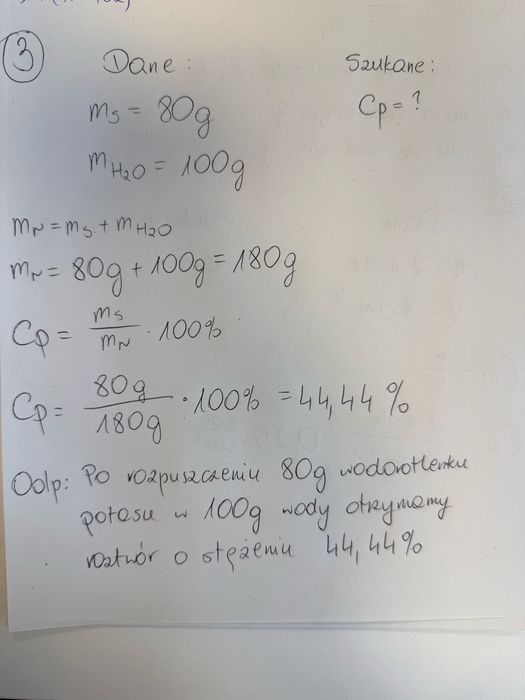 3
Dane: Szukane:
ms = 80g Cp = ?
mH2O = 100g
mr = ms + mH2O
mr = 80g + 100g = 180g
Cp = ms/mr · 100%
Cp = 80g/180g · 100% = 44,44%
Odp: Po rozpuszczeniu 80g wodorotlenku
potasu w 100g wody otrzymamy
roztwór o stężeniu 44,44%